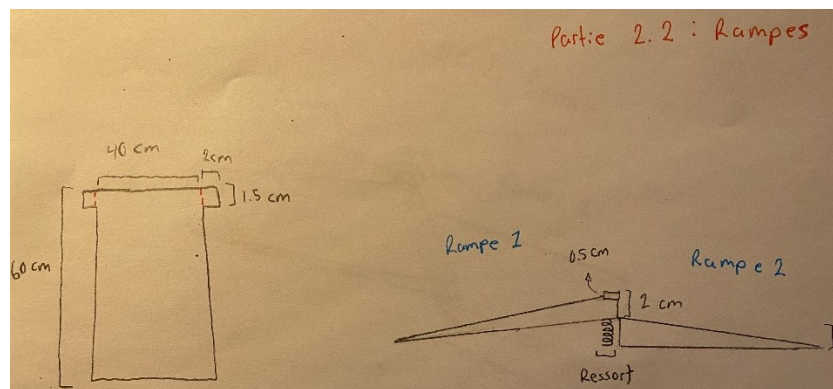 Partie 2.2 : Rampes
40 cm
2cm
1.5 cm
60 cm
Rampe 1
0.5 cm
Rampe 2
2 cm
Ressort